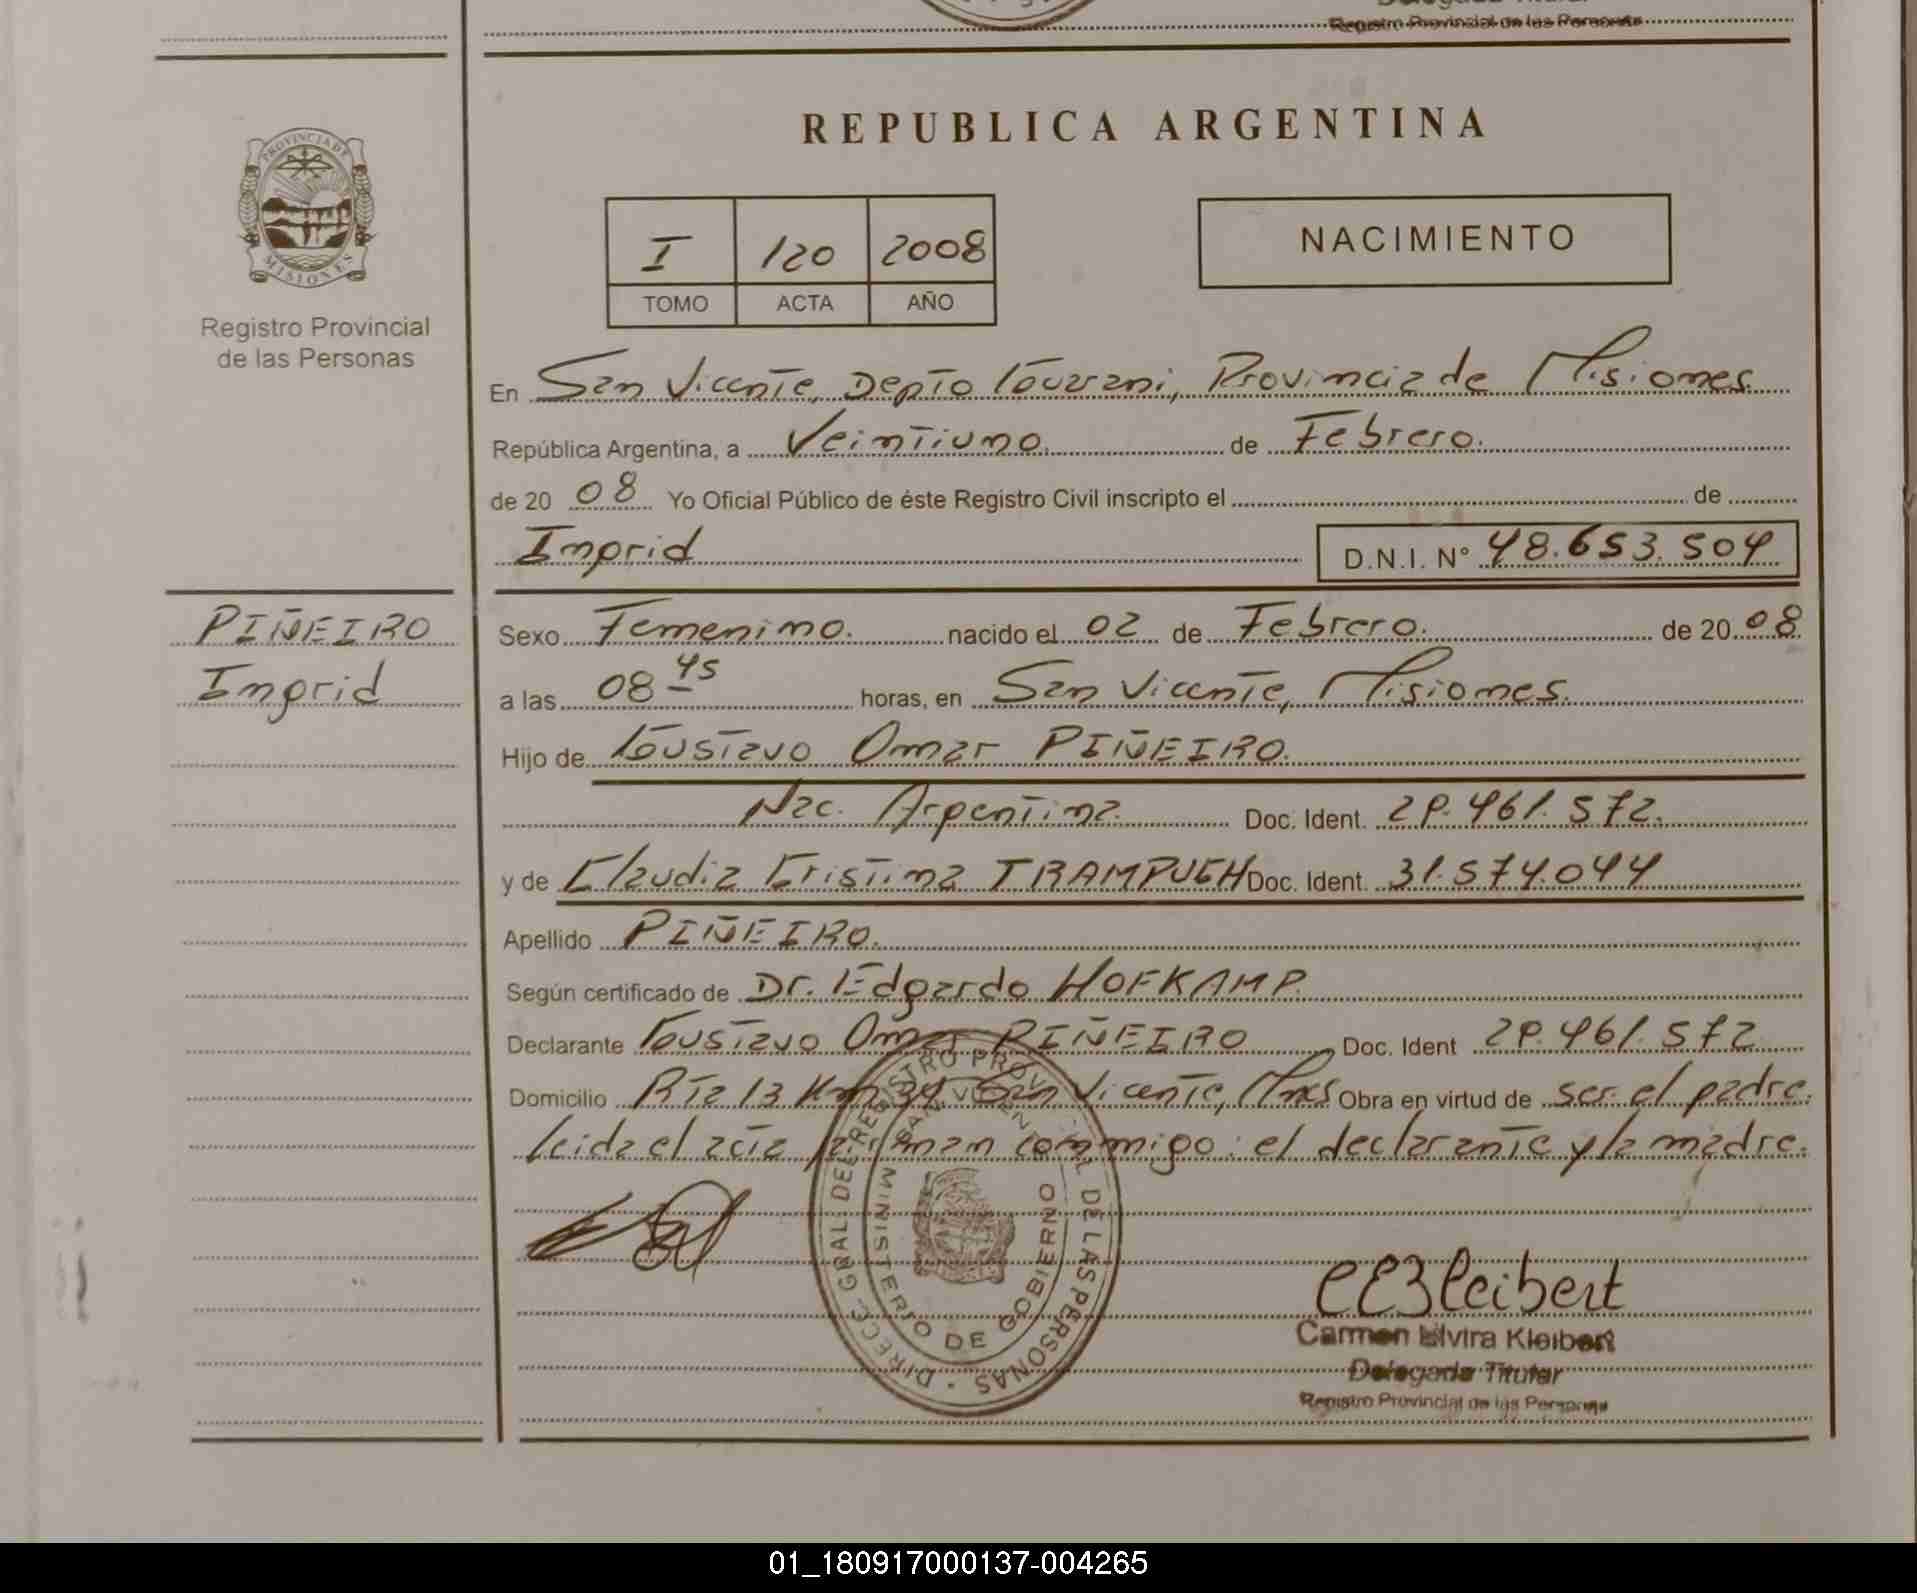 Registro Provincial de las Personas
PROVINCIA DE
MISIONES
Registro Provincial
de las Personas
REPUBLICA ARGENTINA
I 120 2008
TOMO ACTA AÑO
NACIMIENTO
En San Vicente, Depto Guarani, Provincia de Misiones
República Argentina, a Veintiuno. de Febrero.
de 20 08 Yo Oficial Público de éste Registro Civil inscripto el de
Ingrid D.N.I. N° 48.653.504
PIÑEIRO
Ingrid
Sexo Femenino. nacido el 02 de Febrero. de 20 08
a las 08 45 horas, en San Vicente, Misiones.
Hijo de Gustavo Omar PIÑEIRO.
Nac. Argentina. Doc. Ident. 29.461.572.
y de Claudia Cristina TRAMPUCH Doc. Ident. 31.574.044
Apellido PIÑEIRO.
Según certificado de Dr. Edgardo HOFKAMP.
Declarante Gustavo Omar PIÑEIRO Doc. Ident 29.461.572
Domicilio Rta 13 Km 34 San Vicente, Mnes Obra en virtud de ser el padre.
leida el acta firman conmigo: el declarante y la madre.
DIRECC. GRAL. DEL REGISTRO PROVINCIAL DE LAS PERSONAS
SAN VICENTE
MINISTERIO DE GOBIERNO
CEKleibert
Carmen Elvira Kleibert
Delegada Titular
Registro Provincial de las Personas
01_180917000137-004265